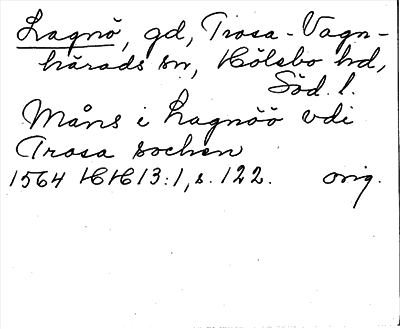 Lagnö, gd, Trosa-Vagn-
härads sn, Hölebo hd,
Söd. l.
Måns i Lagnöö vdi
Trosa sochen
1564 HH 13:1, s. 122. orig.